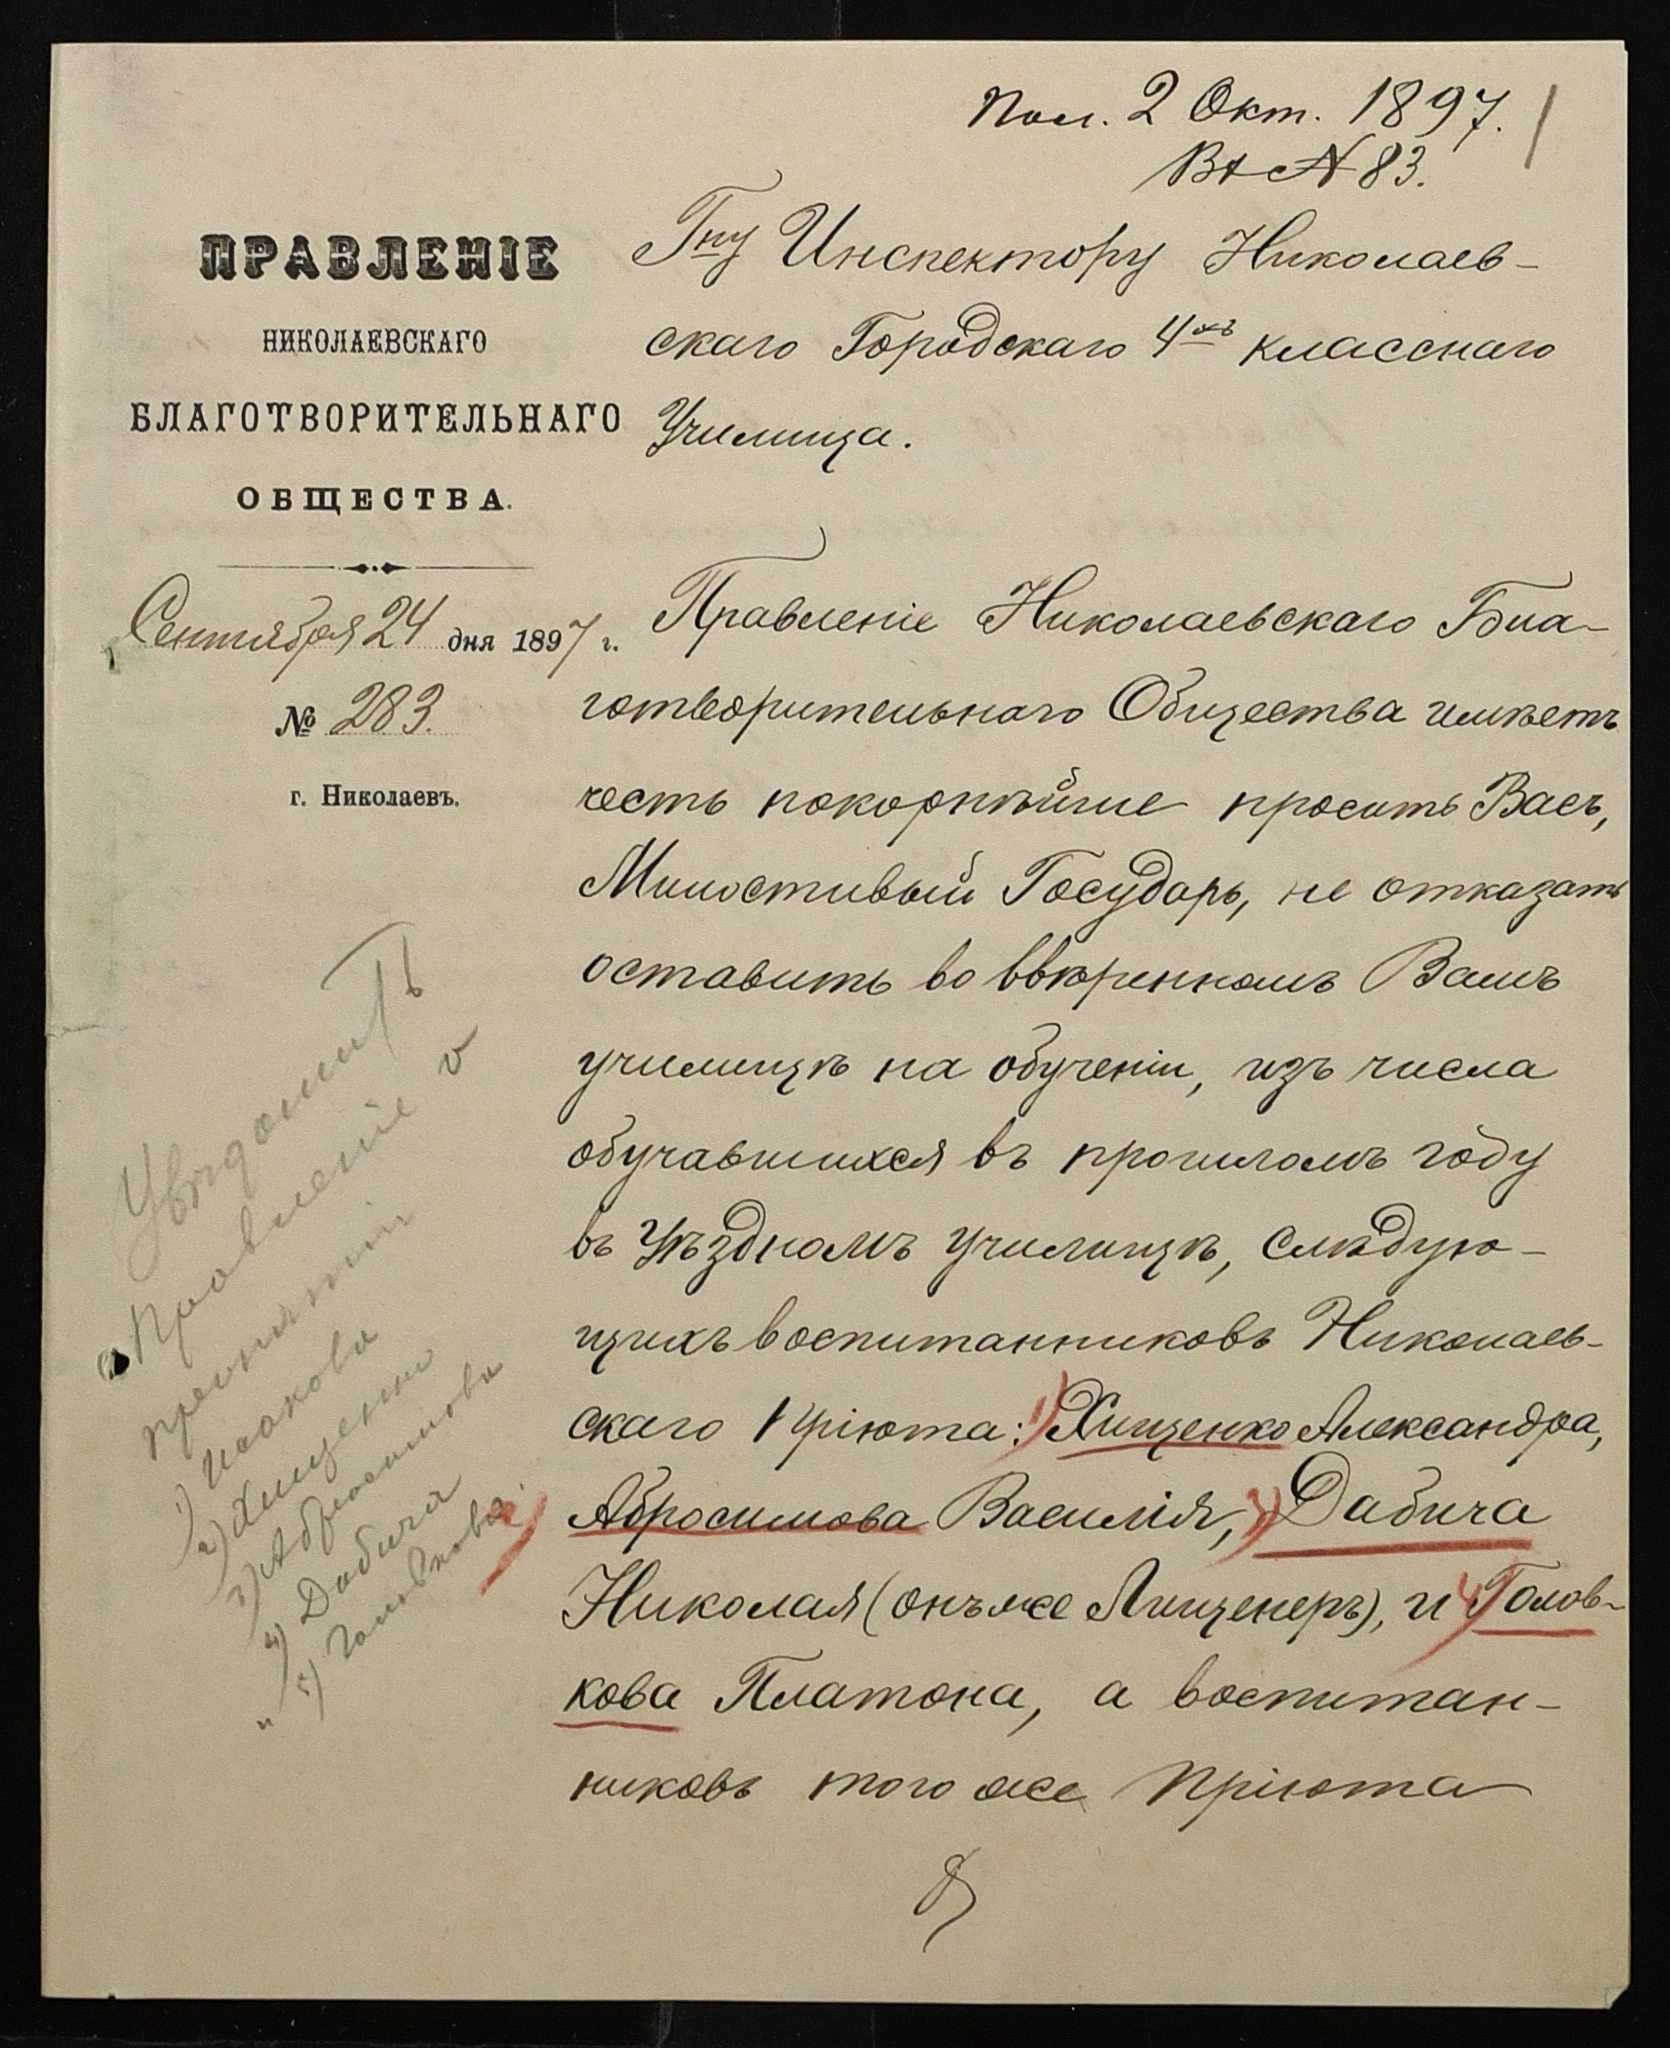 Пол. 2 Окт. 1897.
Вх № 83.
ПРАВЛЕНІЕ
НИКОЛАЕВСКАГО
БЛАГОТВОРИТЕЛЬНАГО
ОБЩЕСТВА.
Сентября 24 дня 1897 г.
№ 283.
г. Николаевъ.
Гну Инспектору Николаев-
скаго Городскаго 4хъ класснаго
Училища.
Правленіе Николаевскаго Бла-
готворительнаго Общества имѣетъ
честь покорнѣйше просить Васъ,
Милостивый Государь, не отказать
оставить во ввѣренномъ Вамъ
училищѣ на обученіи, изъ числа
обучавшихся въ прошломъ году
въ Уѣздномъ училищѣ, слѣдую-
щихъ воспитанниковъ Николаев-
скаго Пріюта: 1) Хищенко Александра,
2) Абросимова Василія, 3) Дабича
Николая (онъ же Лищенеръ), и 4) Голов-
кова Платона, а воспитан-
никовъ того же Пріюта
Увѣдомить
Правленіе о
принятіи
1) Исакова
2) Хищенко
3) Абросимова
4) Дабича
5) Головкова.